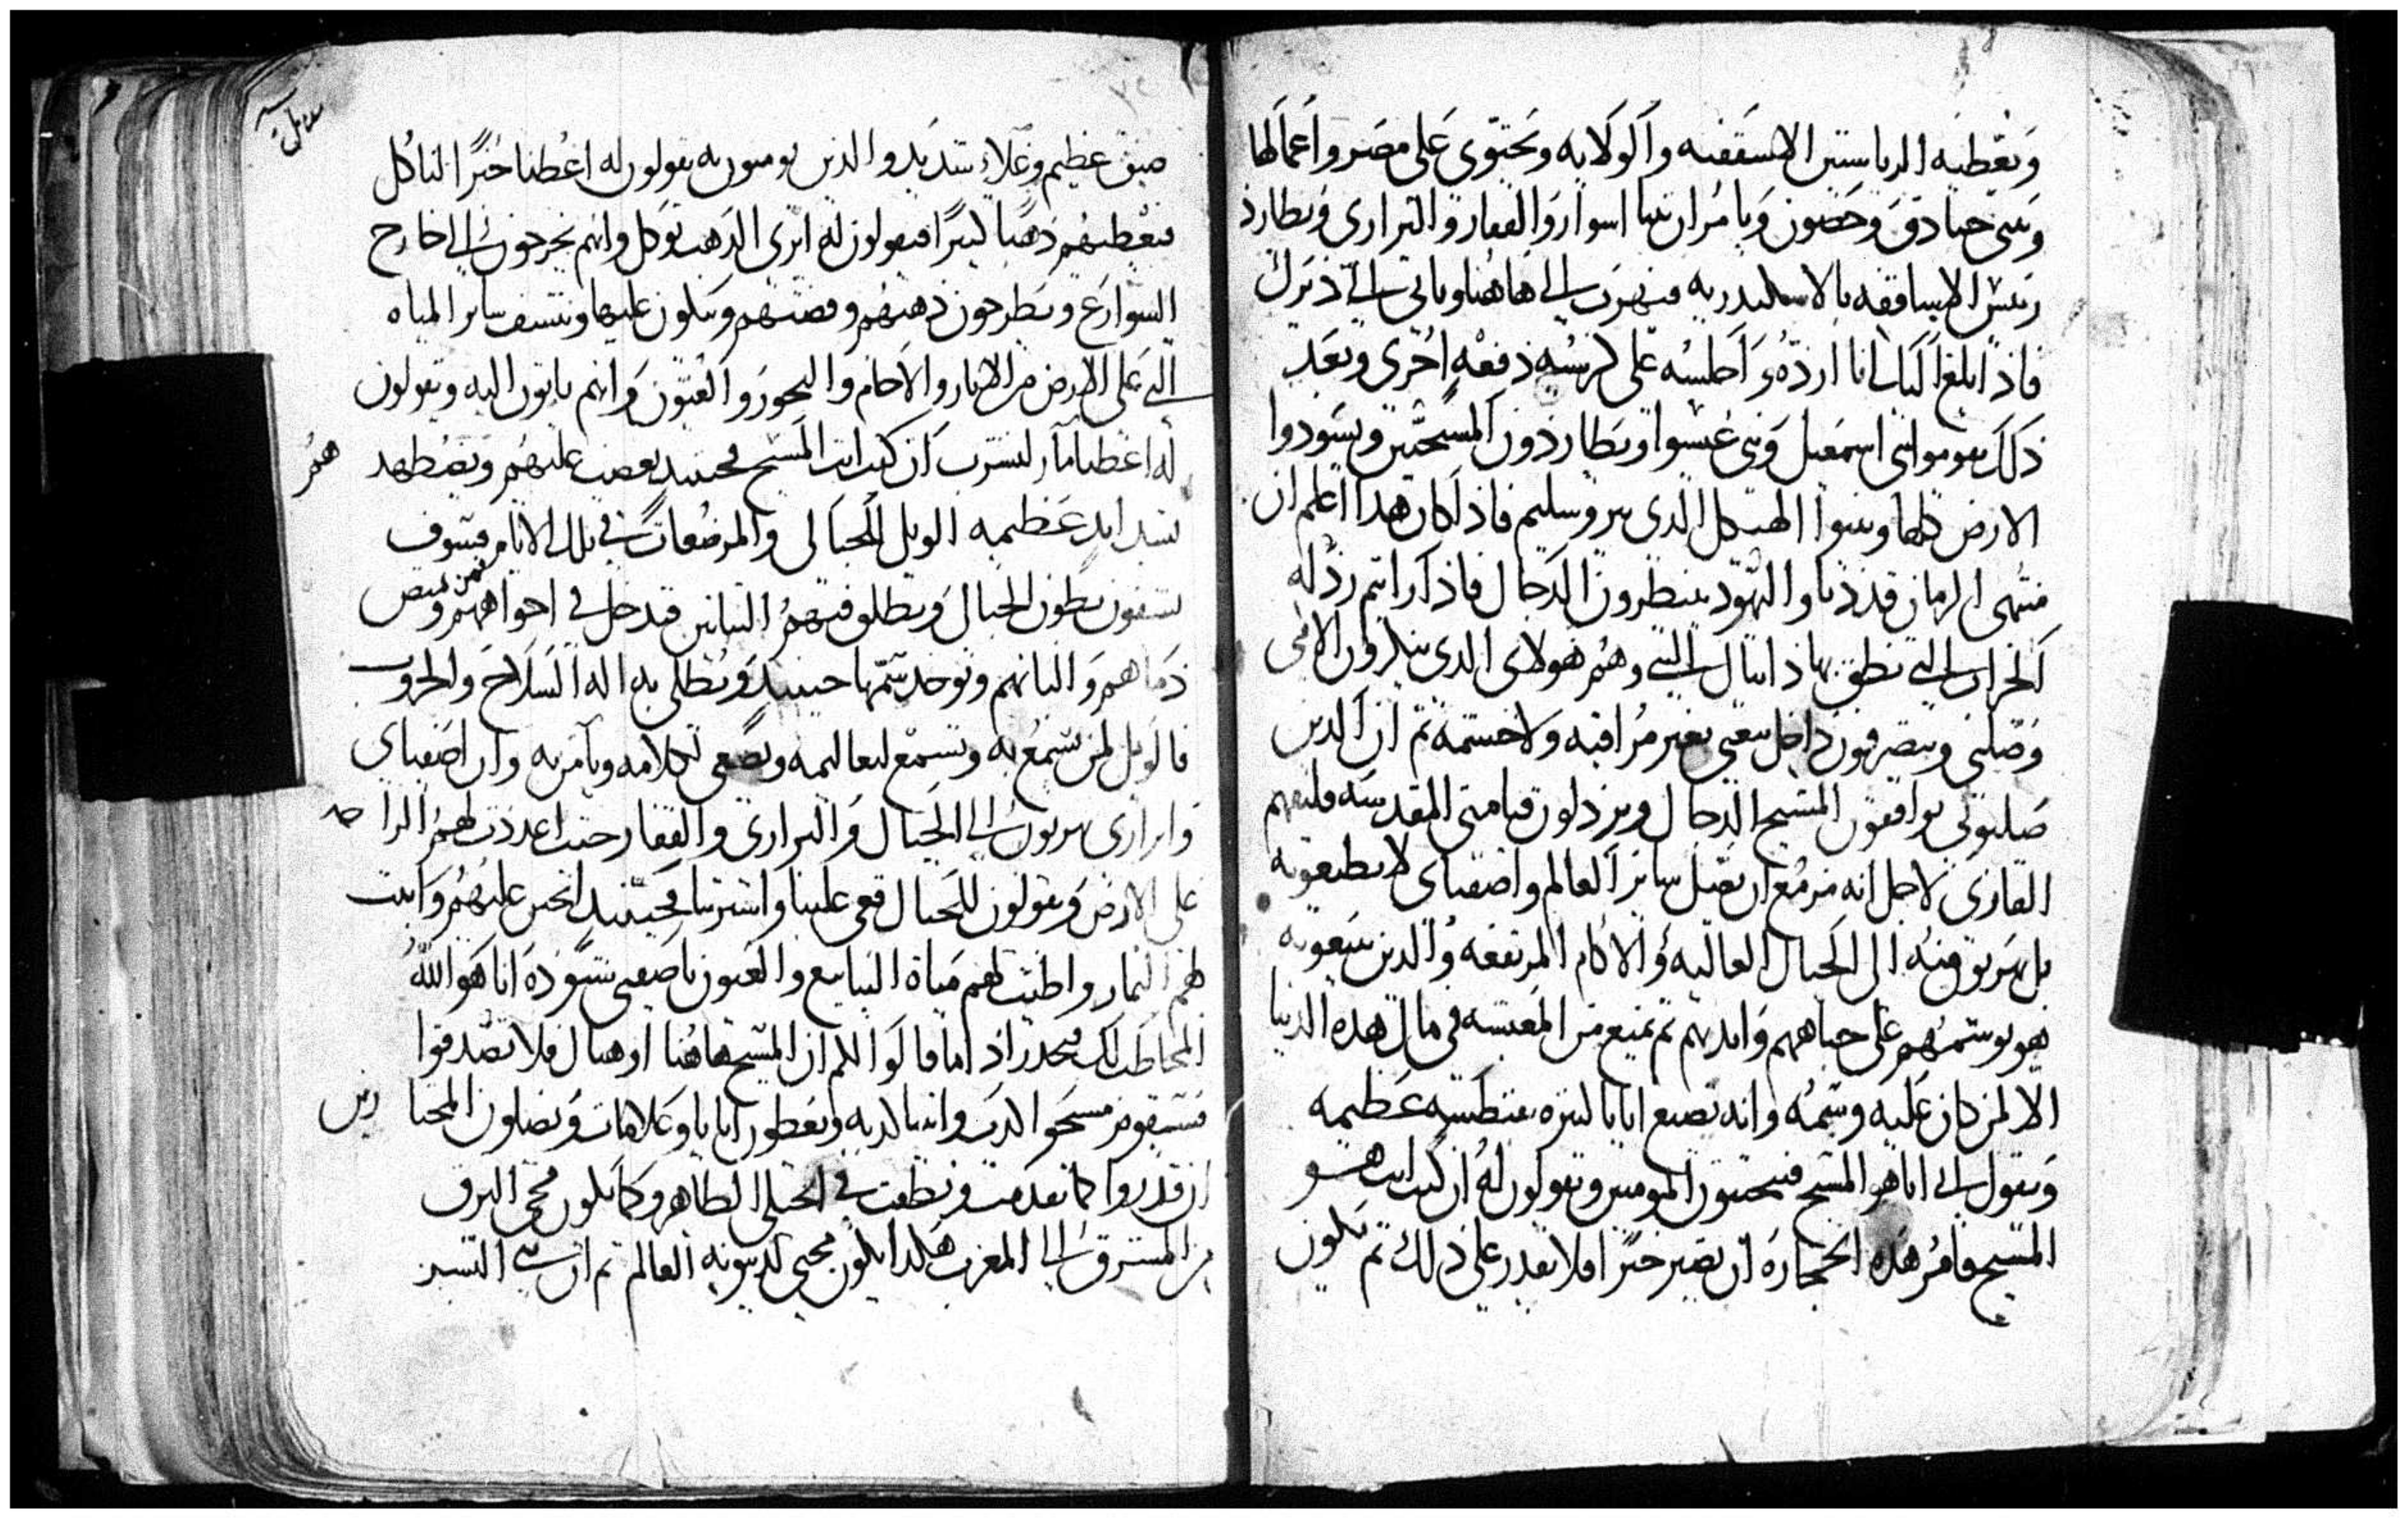 ويعطيه الرياستين الاسقفيه والولايه ويحتوى على مصر واعمالها
ويبنى خنادق وحصون ويامر ان تبنا اسوار والقفار والبرارى ويطارد
ريس الاساقفه بالاسكندريه فيهرب الى هاهنا وياتى الى ديرك
فاذا بلغ الى انا ارده واجلسه على كرسيه دفعه اخرى وبعد
ذلك يقوموا بنى اسمعيل وبنى عيسوا ويطاردون المسيحيين ويسودوا
الارض كلها ويبنوا الهيكل الذى بيروسليم فاذا كان هذا اعلم ان
منتهى الزمان قد دنا واليهود ينتظرون الدجال فاذا رايتم رذلة
الخراب التى نطق بها دانيال النبى وهم هولاى الذى ينكرون الامى
وصلبى ويتصرفون داخل بيعتى بغير مراقبه ولا حشمه ثم ان الذين
صلبونى يوافقون المسيح الدجال ويرذلون قيامتى المقدسه فليفهم
القارى لاجل انه مزمع ان يضل ساير العالم واصفياى لا يطيعونه
بل يهربو منه الى الجبال العاليه والاكام المرتفعه والذين يتبعونه
هو يوسمهم على جباههم وايديهم ثم يمنع من المعيشه فى مال هذه الدنيا
الا لمن كان عليه وسمه وانه يصنع ايايا كبيره عظيمه
ويقول انى انا هو المسيح فيجتمعون المومنين ويقولون له ان كنت انت هو
المسيح فامر هذه الحجاره ان تصير خبزا فلا يقدر على ذلك ثم يكون
ضيق عظيم وغلاء شديد والذين يومنون به يقولون له اعطنا خبزا لناكل
فيعطيهم ذهبا كبيرا فيقولون له اترى الذهب يوكل وانهم يخرجون الى خارج
الشوارع ويطرحون ذهبهم وفضتهم ويبكون عليها وينشف ساير المياه
التى على الارض من الانهار والاجام والبحور والعيون وانهم ياتون اليه ويقولون
له اعطنا ما لنشرب ان كنت انت المسيح فحينيد يغضب عليهم ويضطهدهم
بشدايد عظيمه الويل للحبالى والمرضعات فى تلك الايام فسوف
يشقون بطون الحبال ويطلق فيهم التنانين فتدخل فى اجوافهم وتمتص
دماهم والبانهم ويوخد سمها حينيد ويطلى به اله السلاح والحروب
فالويل لمن يسمع به ويسمع لتعاليمه ويصغى لكلامه ويامن به وان اصفياى
وابرارى يهربون الى الجبال والبرارى والقفار حيث اعددت لهم الراحه
على الارض ويقولون للجبال قعى علينا واسترينا فحينيد اتحنن عليهم وانبت
لهم الثمار واطيب لهم مياة الينابيع والعيون يا صفيى شنوده انا هو الله
المخاطب لك فحدر اذا ما قالوا لكم ان المسيح هاهنا او هناك فلا تصدقوا
فسيقوم مسحوا الكدب وانبيا كدبه ويعطون ايايا وعلامات ويضلون المختارين
ان قدروا كما تقدمت ونطقت فى انجيلى الطاهر وكما يكون مجى البرق
من المشرق الى المغرب هكدا يكون مجيى لدينونه العالم ثم ان